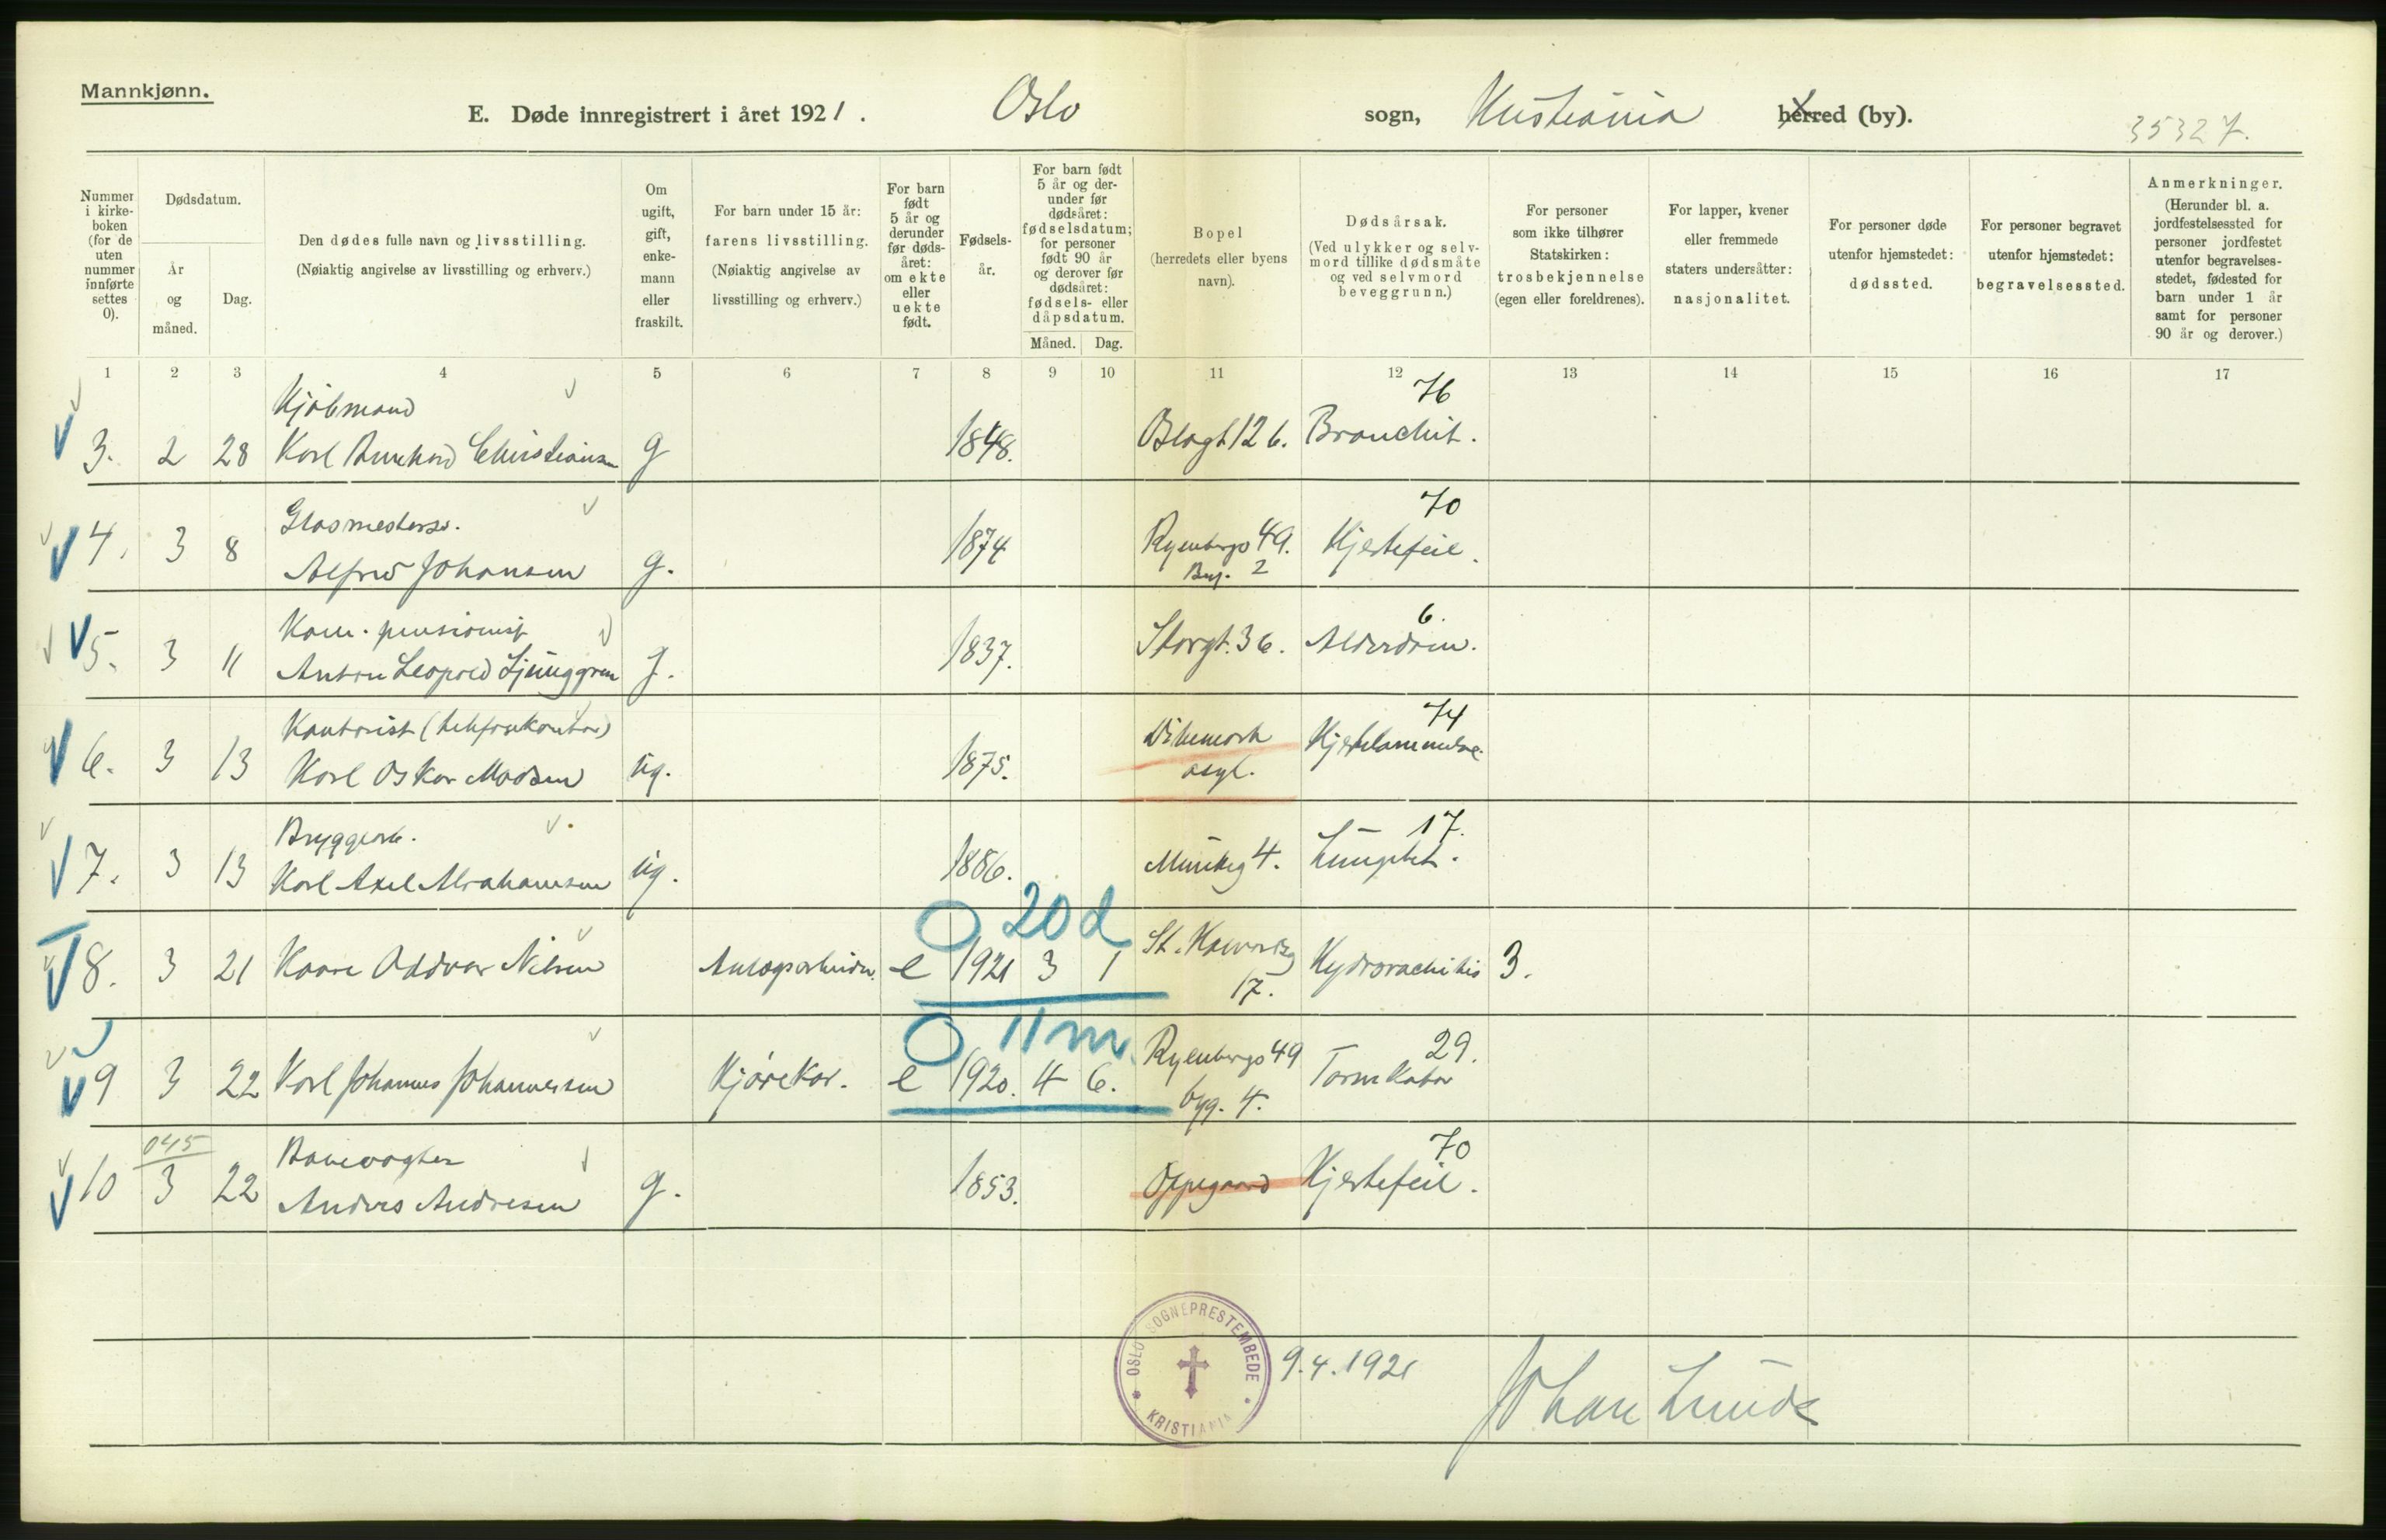 Mannkjønn.
E. Døde innregistrert i året 1921. Oslo sogn, Kristiania herred (by).
35327.
Nummer i kirkeboken (for de uten nummer innførte settes 0).
Dødsdatum.
År og måned.
Dag.
Den dødes fulle navn og livsstilling.
(Nøiaktig angivelse av livsstilling og erhverv.)
Om ugift, gift, enkemann eller fraskilt.
For barn under 15 år: farens livsstilling.
(Nøiaktig angivelse av livsstilling og erhverv.)
For barn født 5 år og derunder før dødsåret: om ekte eller uekte født.
Fødselsår.
For barn født 5 år og derunder før dødsåret: fødselsdatum; for personer født 90 år og derover før dødsåret: fødsels- eller dåpsdatum.
Måned. Dag.
Bopel
(herredets eller byens navn).
Dødsårsak.
(Ved ulykker og selvmord tillike dødsmåte og ved selvmord beveggrunn.)
For personer som ikke tilhører Statskirken: trosbekjennelse (egen eller foreldrenes).
For lapper, kvener eller fremmede staters undersåtter: nasjonalitet.
For personer døde utenfor hjemstedet: dødssted.
For personer begravet utenfor hjemstedet: begravelsessted.
Anmerkninger.
(Herunder bl. a. jordfestelsessted for personer jordfestet utenfor begravelsesstedet, fødested for barn under 1 år samt for personer 90 år og derover.)
1 2 3 4 5 6 7 8 9 10 11 12 13 14 15 16 17
Kjøbmand 76
3. 2 28 Karl Christiansen g 1848. 12 b. Bronchit.
Glasmestersv. 70
4. 3 8 Alfred Johansen g. 1874 Ryenbergs 49. Hjertefeil.
2
Kom. pensionist 6.
5. 3 11 Anton Leopold Ljunggren g. 1837. Storgt. 36. Alderdom.
Kontorist (telefonkontor) 74
6. 3 13 Karl Oskar Madsen ug. 1875. Dikemark asyl. Hjertelammelse.
Bryggearb. 17.
7. 3 13 Karl Axel Abrahamsen ug. 1886. Munkeg 4. Lungebet.
20 d
8. 3 21 Kaare Oddvar Nilsen Anlægsarbeider. e 1921 3 1 St. Halvardsg 17. Hydrorachitis 3.
11 m
29.
9 3 22 Karl Johannes Johannessen Kjørekar. e 1920. 4 6. Ryenbergs 49 byg. 4. Tarmkatar
045
Banevogter 70
10 3 22 Anders Andresen g. 1853. Oppegaard Hjertefeil.
OSLO SOGNEPRESTEMBEDE
KRISTIANIA
9.4.1921
Johan Lunde